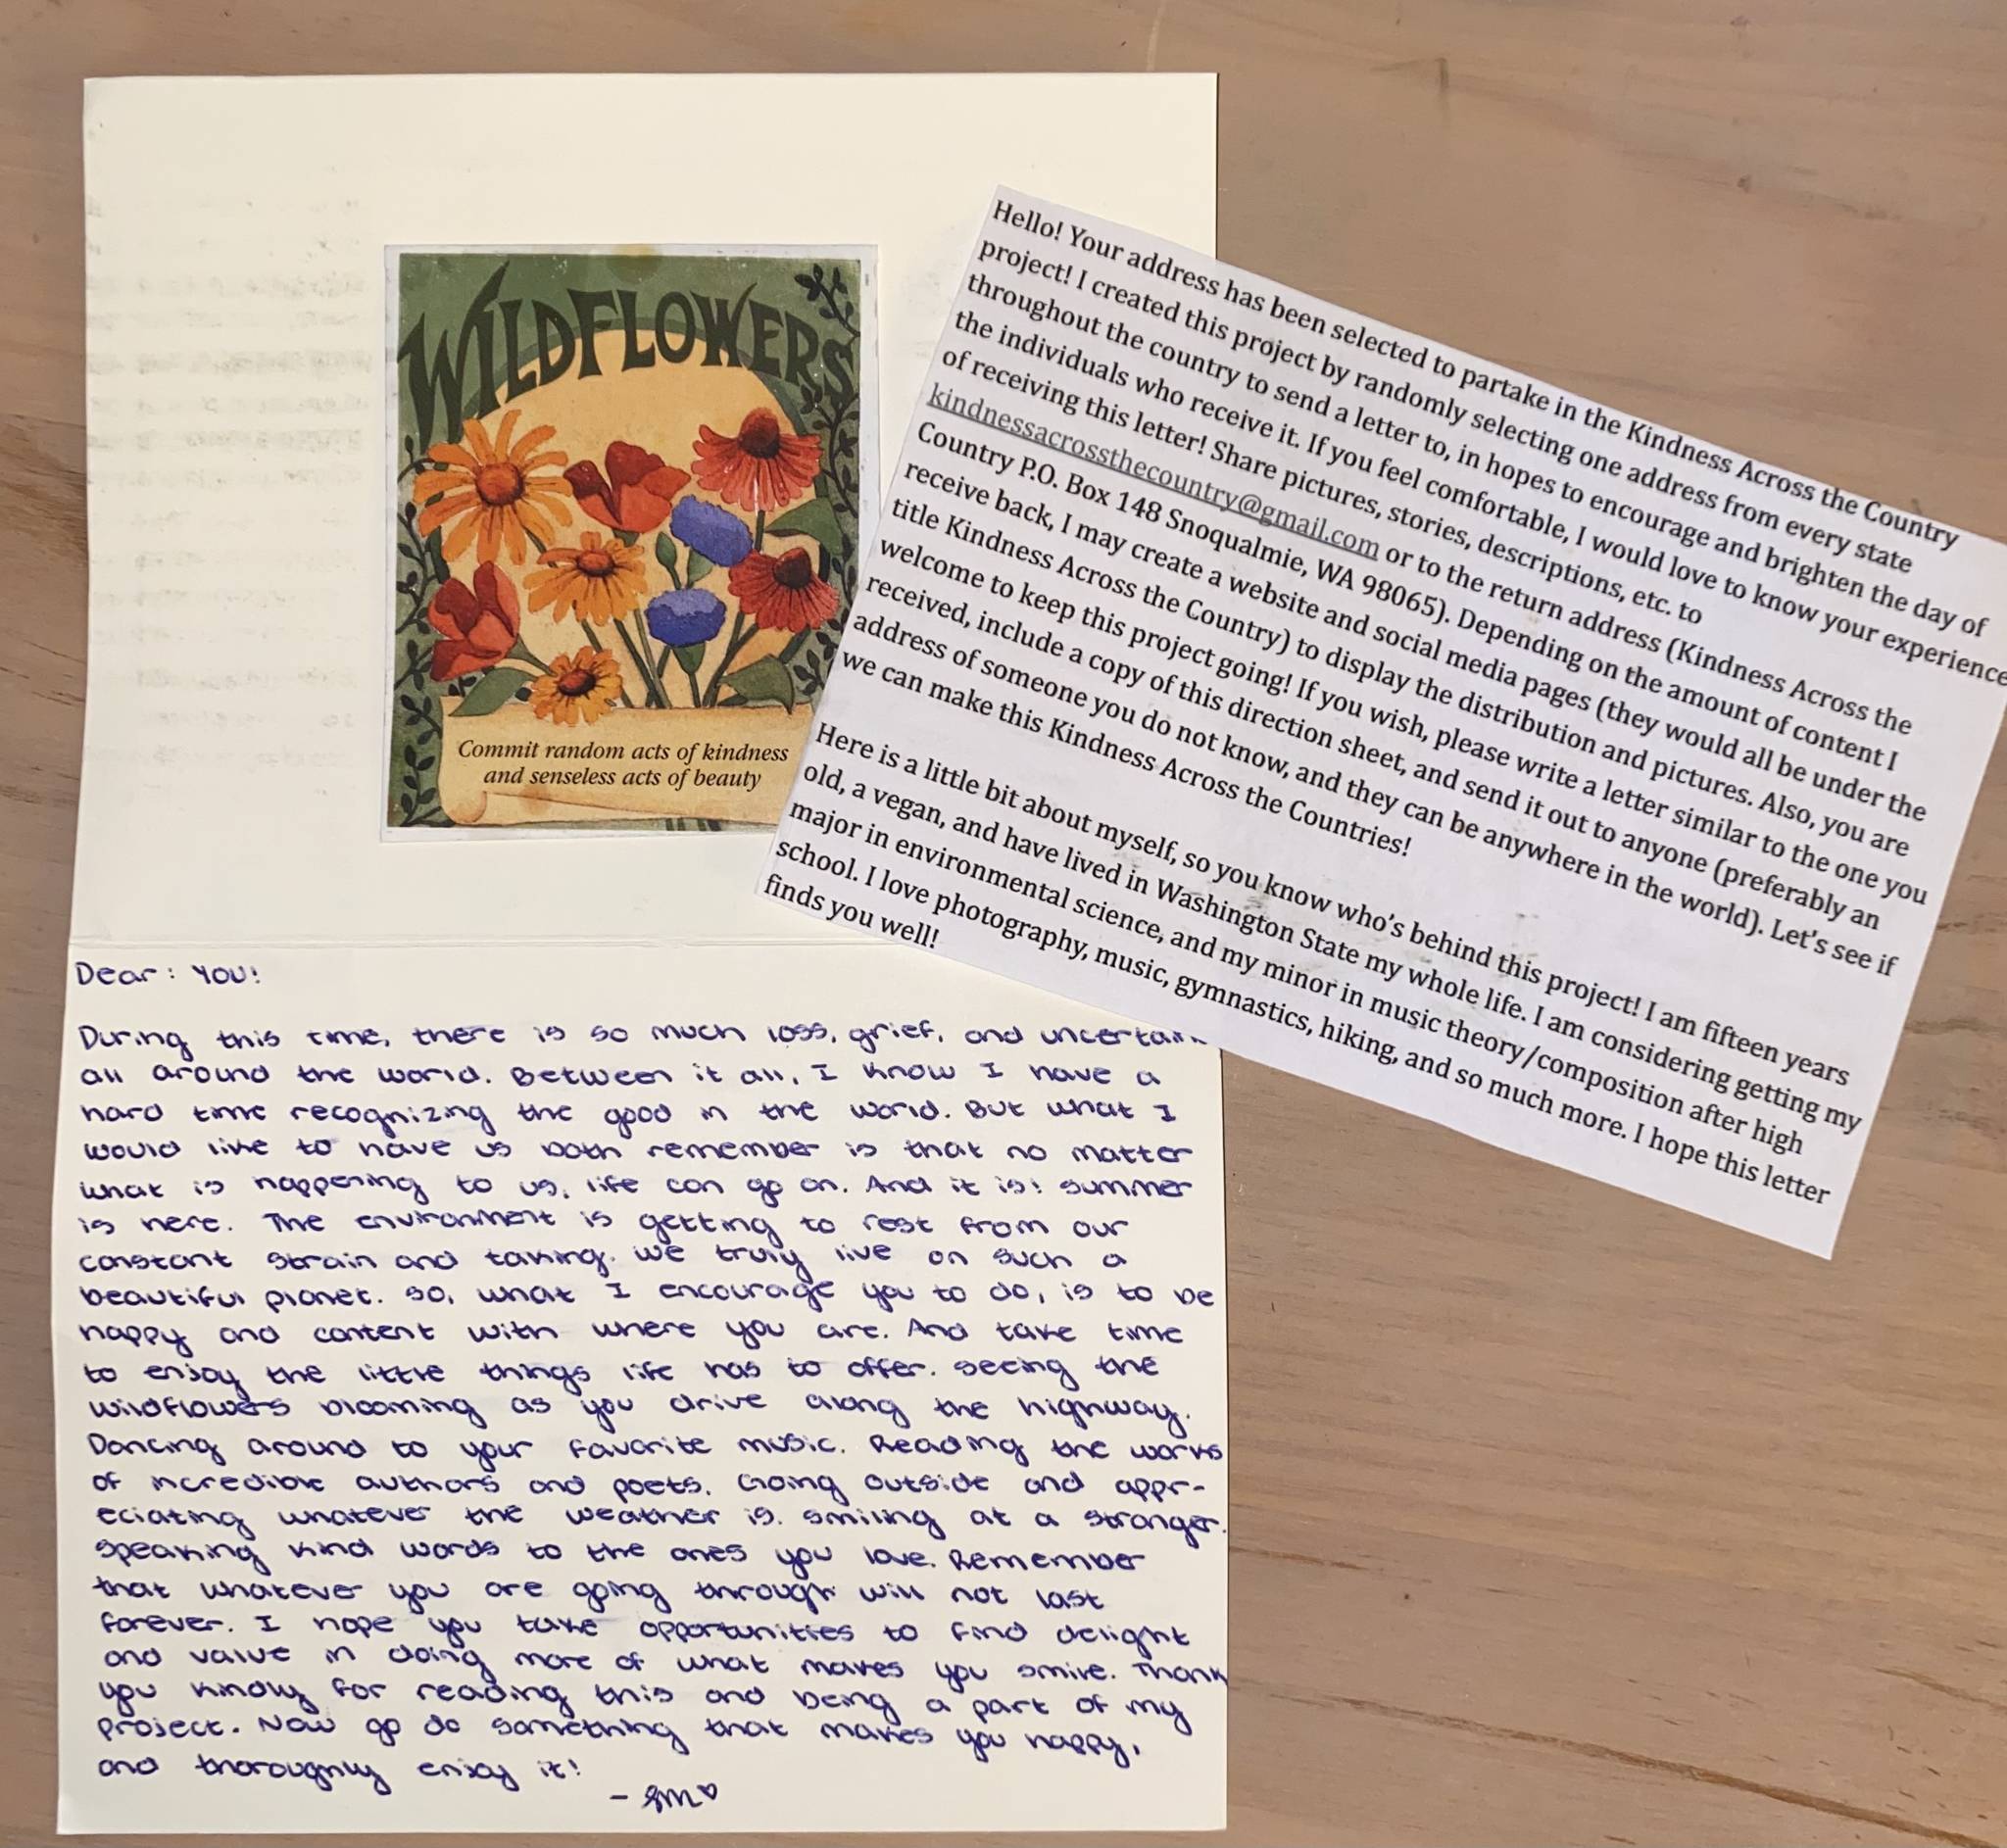 WILDFLOWERS
Commit random acts of kindness
and senseless acts of beauty
Hello! Your address has been selected to partake in the Kindness Across the Country
project! I created this project by randomly selecting one address from every state
throughout the country to send a letter to, in hopes to encourage and brighten the day of
the individuals who receive it. If you feel comfortable, I would love to know your experience
of receiving this letter! Share pictures, stories, descriptions, etc. to
kindnessacrossthecountry@gmail.com or to the return address (Kindness Across the
Country P.O. Box 148 Snoqualmie, WA 98065). Depending on the amount of content I
receive back, I may create a website and social media pages (they would all be under the
title Kindness Across the Country) to display the distribution and pictures. Also, you are
welcome to keep this project going! If you wish, please write a letter similar to the one you
received, include a copy of this direction sheet, and send it out to anyone (preferably an
address of someone you do not know, and they can be anywhere in the world). Let's see if
we can make this Kindness Across the Countries!
Here is a little bit about myself, so you know who's behind this project! I am fifteen years
old, a vegan, and have lived in Washington State my whole life. I am considering getting my
major in environmental science, and my minor in music theory/composition after high
school. I love photography, music, gymnastics, hiking, and so much more. I hope this letter
finds you well!
Dear: YOU!
During this time, there is so much loss, grief, and
all around the world. Between it all, I know I have a
hard time recognizing the good in the world. But what I
would like to have us both remember is that no matter
what is happening to us, life can go on. And it is! Summer
is here. The environment is getting to rest from our
constant strain and taking. We truly live on such a
beautiful planet. So, what I encourage you to do, is to be
happy and content with where you are. And take time
to enjoy the little things life has to offer. Seeing the
wildflowers blooming as you drive along the highway.
Dancing around to your favorite music. Reading the works
of incredible authors and poets. Going outside and appr-
eciating whatever the weather is. Smiling at a stranger.
Speaking kind words to the ones you love. Remember
that whatever you are going through will not last
forever. I hope you take opportunities to find delight
and value in doing more of what makes you smile. Thank
you kindly for reading this and being a part of my
project. Now go do something that makes you happy,
and thoroughly enjoy it!